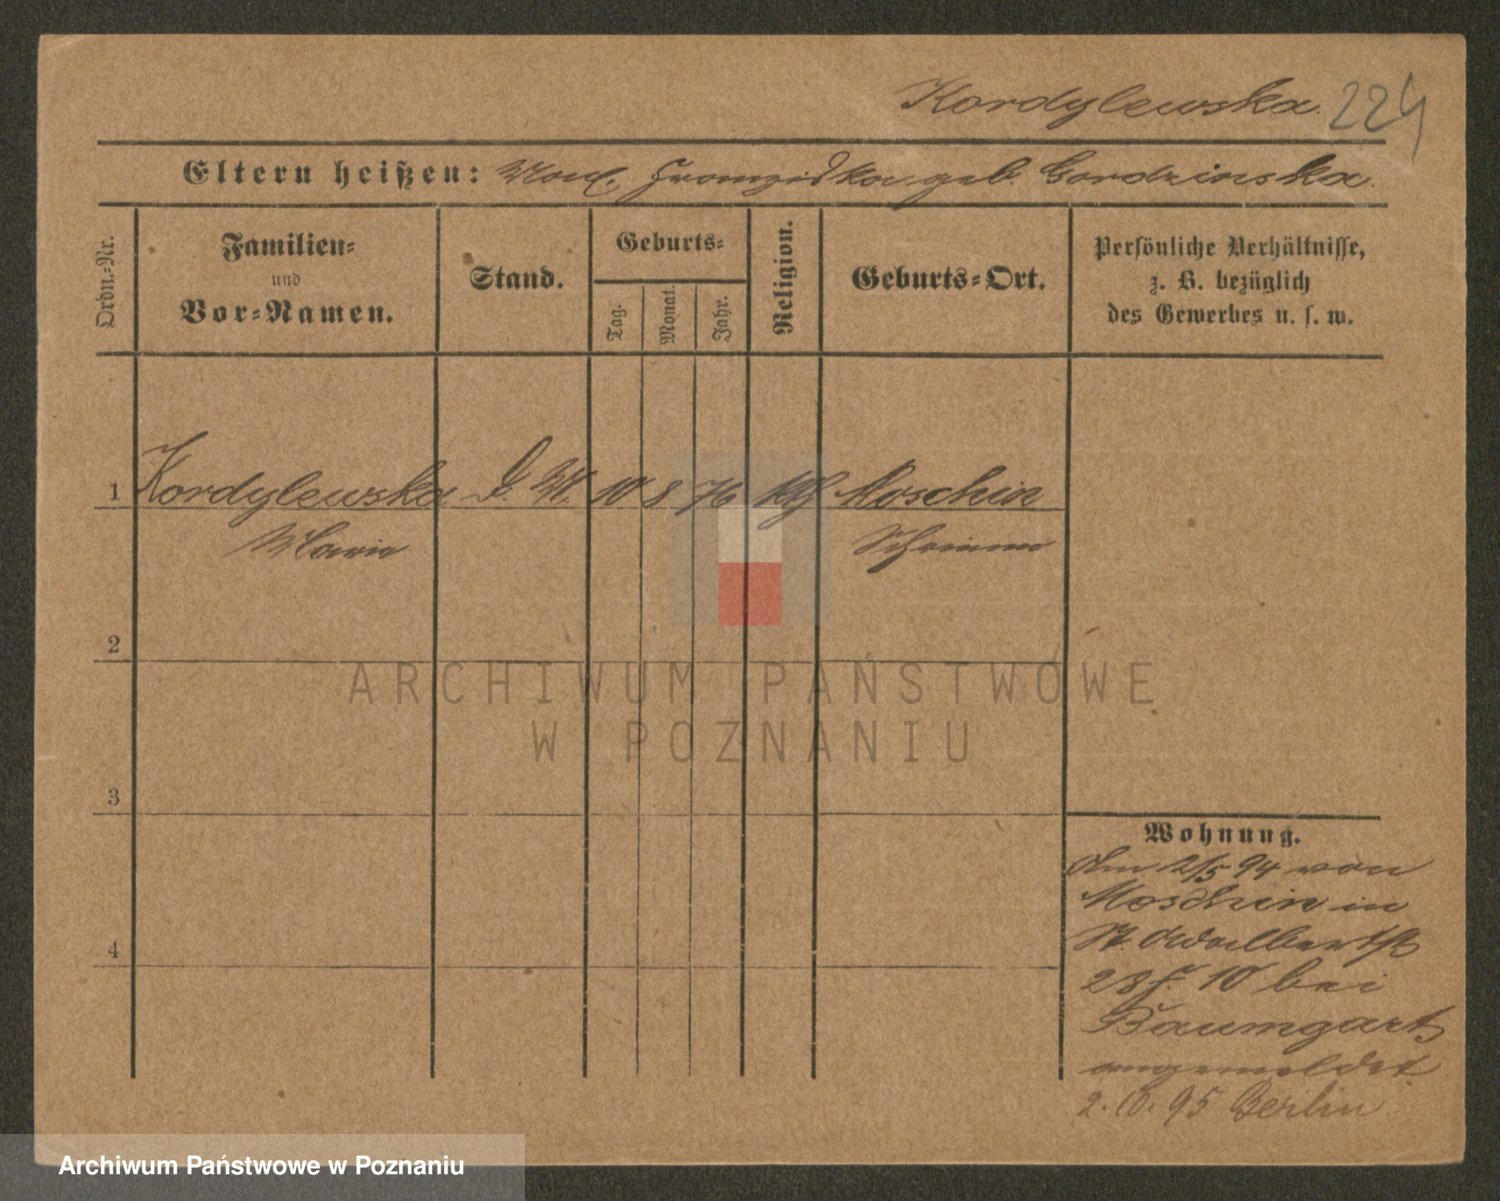 Kordylewska. 224
Eltern heißen: Franziska geb. Gordzinska.
Ordn.-Nr.
Familien-
und
Vor-Namen.
Stand.
Geburts-
Tag.
Monat.
Jahr.
Religion.
Geburts-Ort.
Persönliche Verhältnisse,
z. B. bezüglich
des Gewerbes u. s. w.
1 Kordylewska D. M. 10 8 76 kth Moschin
Marie Schrimm
2
ARCHIWUM PAŃSTWOWE
W POZNANIU
3
4
Wohnung.
Am 2/5 94 von
Moschin in
St. Adalbertstr
28 f. 10 bei
Baumgart
angemeldet.
2. 10. 95 Berlin
Archiwum Państwowe w Poznaniu